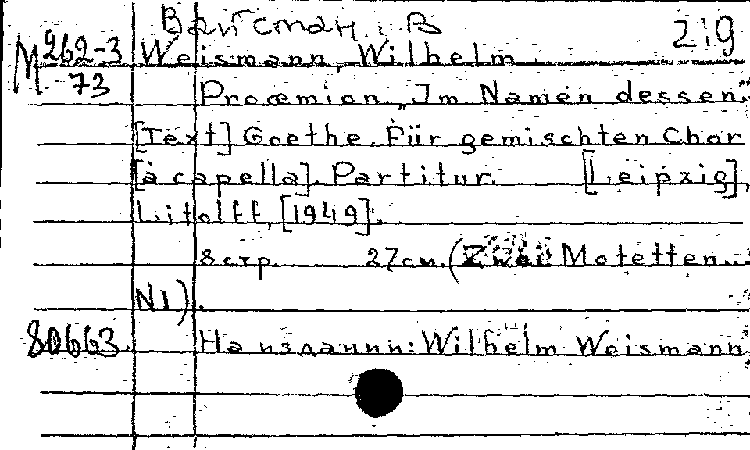 Вайсман, В 219
М 262-3 Weismann, Wilhelm.
73 Proœmion „Im Namen dessen"
[Text] Goethe. Für gemischten Chor
[à capella]. Partitur. [Leipzig],
Litolff, [1949].
8 стр. 27 см. (Zwei Motetten...
N1).
80663 На издании: Wilhelm Weismann